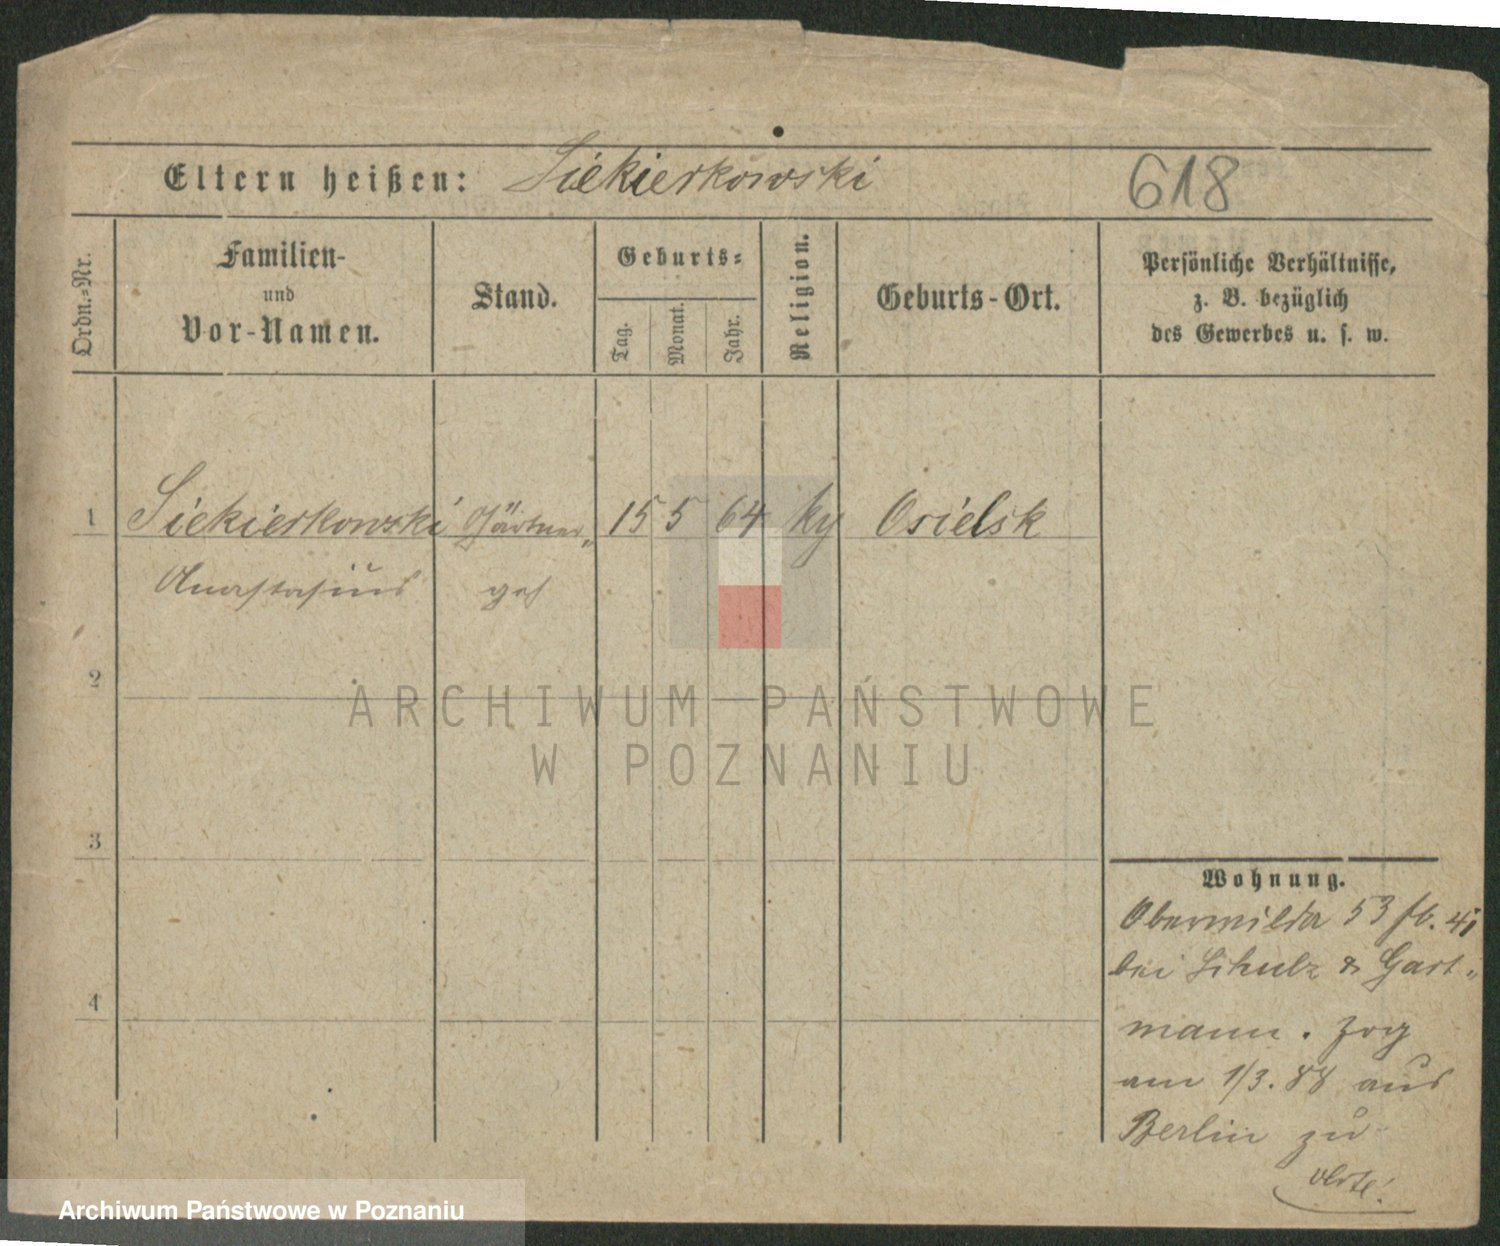 Eltern heißen: Siekierkowski 618
Ordn.-Nr.
Familien-
und
Vor-Namen.
Stand.
Geburts-
Tag.
Monat.
Jahr.
Religion.
Geburts-Ort.
Persönliche Verhältnisse,
z. B. bezüglich
des Gewerbes u. s. w.
1 Siekierkowski Gärtner 15 5 64 ky Osielsk
Anastasius geh
2
ARCHIWUM PAŃSTWOWE
W POZNANIU
3
4
Wohnung.
Oberwilda 53
bei Schulz & Gart-
mann. Zog
am 1/3. 88 aus
Berlin zu
verte!
Archiwum Państwowe w Poznaniu